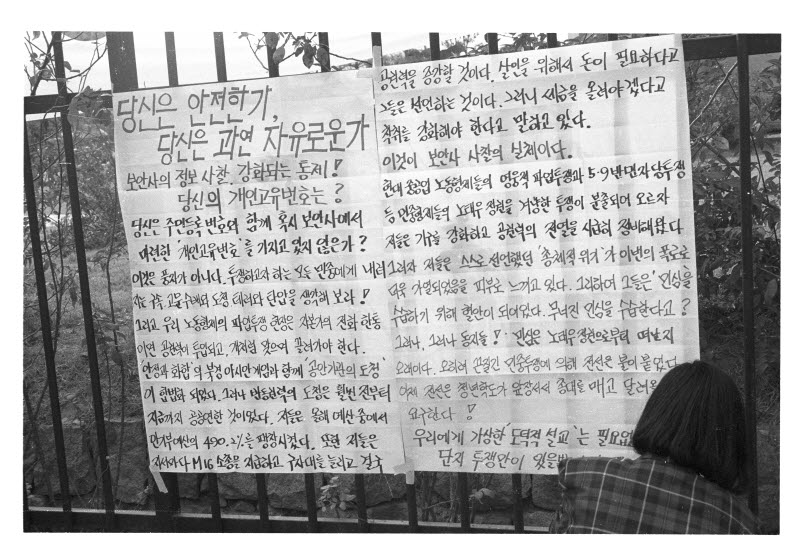 당신은 안전한가,
당신은 과연 자유로운가
보안사의 정보사찰. 강화되는 통제!
당신의 개인고유번호는?
당신은 주민등록번호와 함께 혹시 보안사에서
마련한 '개인고유번호'를 가지고 있지 않은가?
이것은 풍자가 아니다. 투쟁하고자 하는 모든 민중에게 내려
지는 구속, 고문, 수배와 도청, 테러와 탄압을 생각해 보라!
그리고 우리 노동형제의 파업투쟁 현장은 자본가의 전화 한통
이면 공권력이 투입되고, 개처럼 맞으며 끌려가야 한다.
'안정과 화합'의 북경 아시안게임과 함께 '공안기관의 도청'
이 합법화 되었다. 그러나 반동권력의 도청은 훨씬 전부터
지금까지 공공연한 것이었다. 저들은 올해 예산 중에서
안기부예산의 490.2%를 팽창시켰다. 또한 저들은
M16 소총을 지급하고, 구사대를 늘리고 결국
공권력을 증강할 것이다. 살인을 위해서 돈이 필요하다고
그들은 선언하는 것이다. 그러니 세금을 올려야겠다고
착취를 강화해야 한다고 말하고 있다.
이것이 보안사 사찰의 실체이다.
현대 중공업 노동형제들의 영웅적 파업투쟁과 5·9 반민자당투쟁
등 민중형제들의 노태우 정권을 거창한 투쟁이 분출되어 오르자
저들은 기구를 강화하고 공권력의 전열을 시급히 정비해왔다
그러자 저들은 스스로 선언했던 '총체적 위기'가 이번의 폭로로
더욱 가열되었음을 피부로 느끼고 있다. 그리하여 그들은 '민심을
수습하기 위해 혈안이 되어있다. 무너진 민심을 수습한다고?
그러나, 그러나 동지들! 민심은 노태우정권으로부터 떠난지
오래이다. 오히려 끈질긴 민중투쟁에 의해 전선은 불이 붙었다
이제 전선은 청년학도가 앞장서서 총대를 메고 달려올
요구한다!
우리에게 가상한 '도덕적 설교'는 필요없
단지 투쟁만이 있을뿐